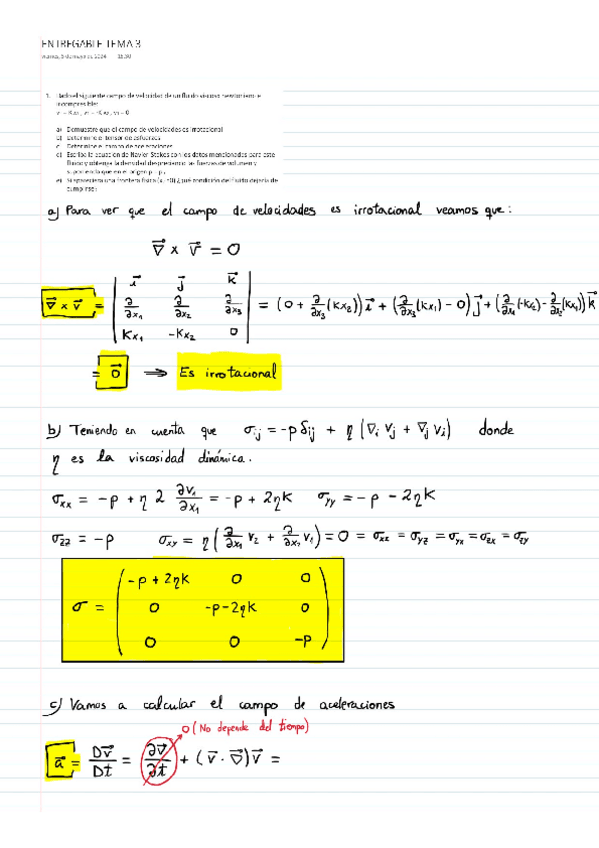 ENTREGABLE TEMA 3
1. Dado el siguiente campo de velocidad de un fluido viscoso newtoniano e
incompresible:
a) Demuestre que el campo de velocidades es irrotacional
b) Determine el tensor de esfuerzos
c) Determine el campo de aceleraciones
d) Escriba la ecuación de Navier-Stokes con los datos mencionados para este
fluido y obtenga la densidad despreciando las fuerzas de volumen y
suponiendo que en el origen p = p₀
e) Si apareciera una frontera física ¿qué condición del fluido dejaría de
cumplirse?
a) Para ver que el campo de velocidades es irrotacional veamos que:
∇⃗ × v⃗ = 0
∇⃗ × v⃗ = | i⃗ j⃗ k⃗ ; ∂/∂x₁ ∂/∂x₂ ∂/∂x₃ ; Kx₁ -Kx₂ 0 | = (0 + ∂/∂x₃(Kx₂)) i⃗ + (∂/∂x₃(Kx₁) - 0) j⃗ + (∂/∂x₁(-Kx₂) - ∂/∂x₂(Kx₁)) k⃗
= 0⃗ → Es irrotacional
b) Teniendo en cuenta que σij = -p δij + η (∇i Vj + ∇j Vi) donde
η es la viscosidad dinámica.
σxx = -p + η 2 ∂v₁/∂x₁ = -p + 2ηK σyy = -p - 2ηK
σzz = -p σxy = η (∂/∂x₁ v₂ + ∂/∂x₂ v₁) = 0 = σxz = σyz = σyx = σzx = σzy
σ = ( -p + 2ηK 0 0
0 -p-2ηK 0
0 0 -p )
c) Vamos a calcular el campo de aceleraciones
0 (No depende del tiempo)
a⃗ = Dv⃗/Dt = ∂v⃗/∂t + (v⃗ · ∇⃗) v⃗ =